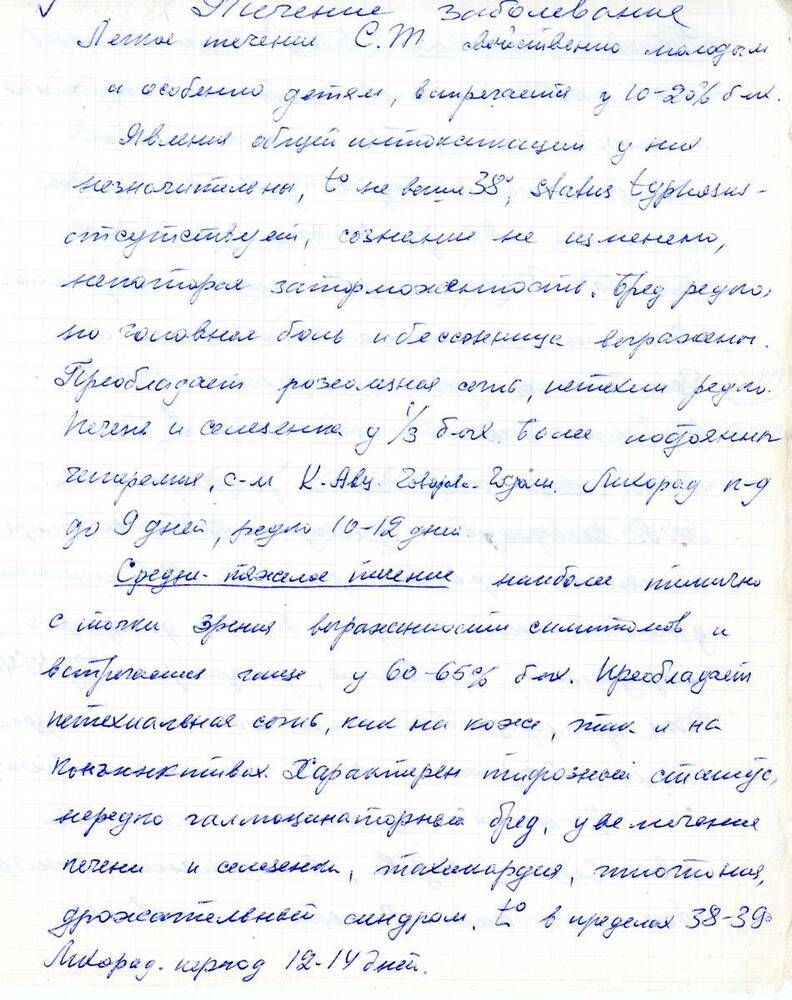 Течение заболевания
Легкое течение С.Т свойственно молодым
и особенно детям, встречается у 10-20% б-ых.
Явления общей интоксикации у них
незначительны, t° не выше 38°, status typhosus -
отсутствует, сознание не изменено,
некоторая заторможенность. Бред редко,
но головная боль и бессонница выражены.
Преобладает розеолезная сыпь, петехии редко.
Печень и селезенка у 1/3 б-ых. Более постоянны
гиперемия, с-м К-Авц. Говорова-Годэлье. Лихорад п-д
до 9 дней, редко 10-12 дней
Средне-тяжелое течение наиболее типично
с точки зрения выраженности симптомов и
встречается чаще у 60-65% б-ых. Преобладает
петехиальная сыпь, как на коже, так и на
конъюнктивах. Характерен тифозный статус,
нередко галлюцинаторный бред, увеличение
печени и селезенки, тахикардия, гипотония,
дрожательный синдром, t° в пределах 38-39°
Лихорад. период 12-14 дней.